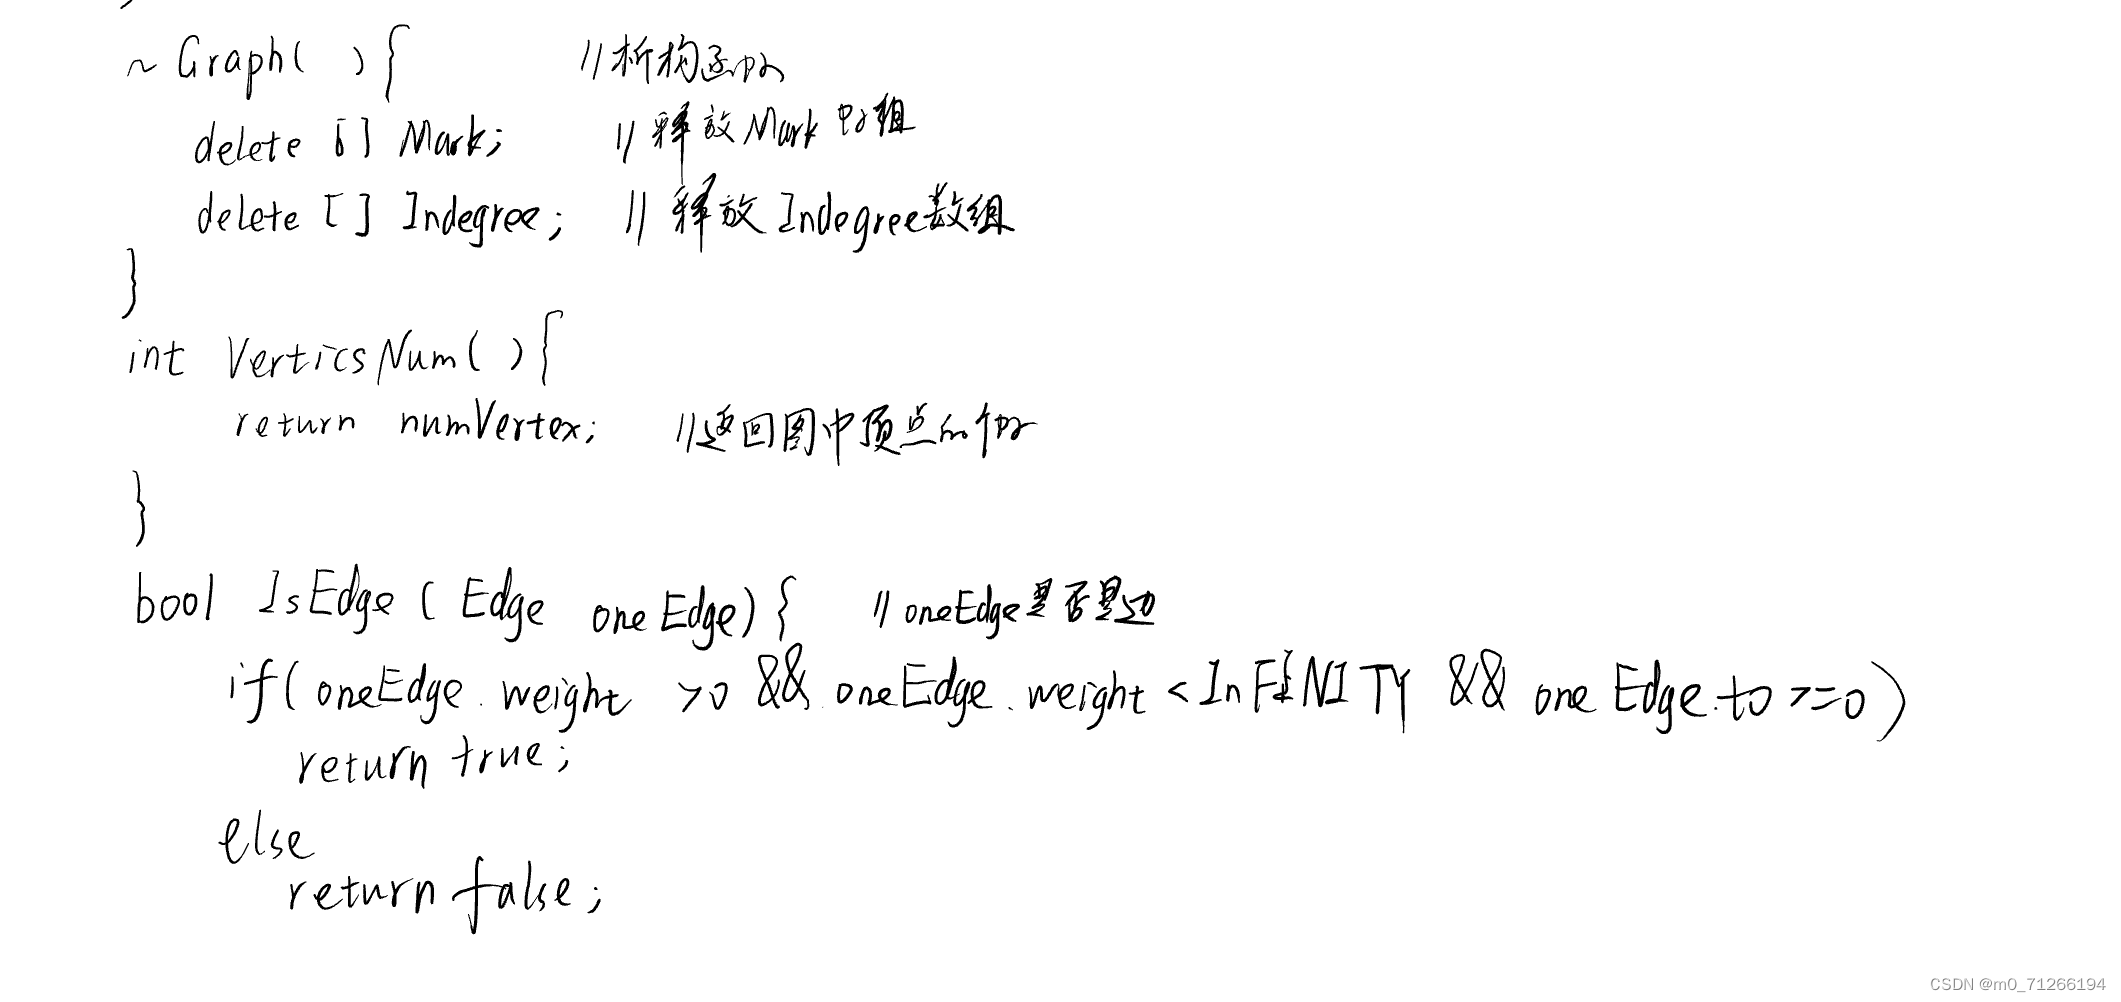 }
~Graph( ){ //析构函数
delete [] Mark; //释放Mark数组
delete [] Indegree; //释放Indegree数组
}
int VerticsNum( ){
return numVertex; //返回图中顶点的个数
}
bool IsEdge( Edge oneEdge){ //oneEdge是否是边
if(oneEdge.weight >0 && oneEdge.weight <InFINITY && oneEdge.to >=0)
return true;
else
return false;
CSDN @m0_71266194